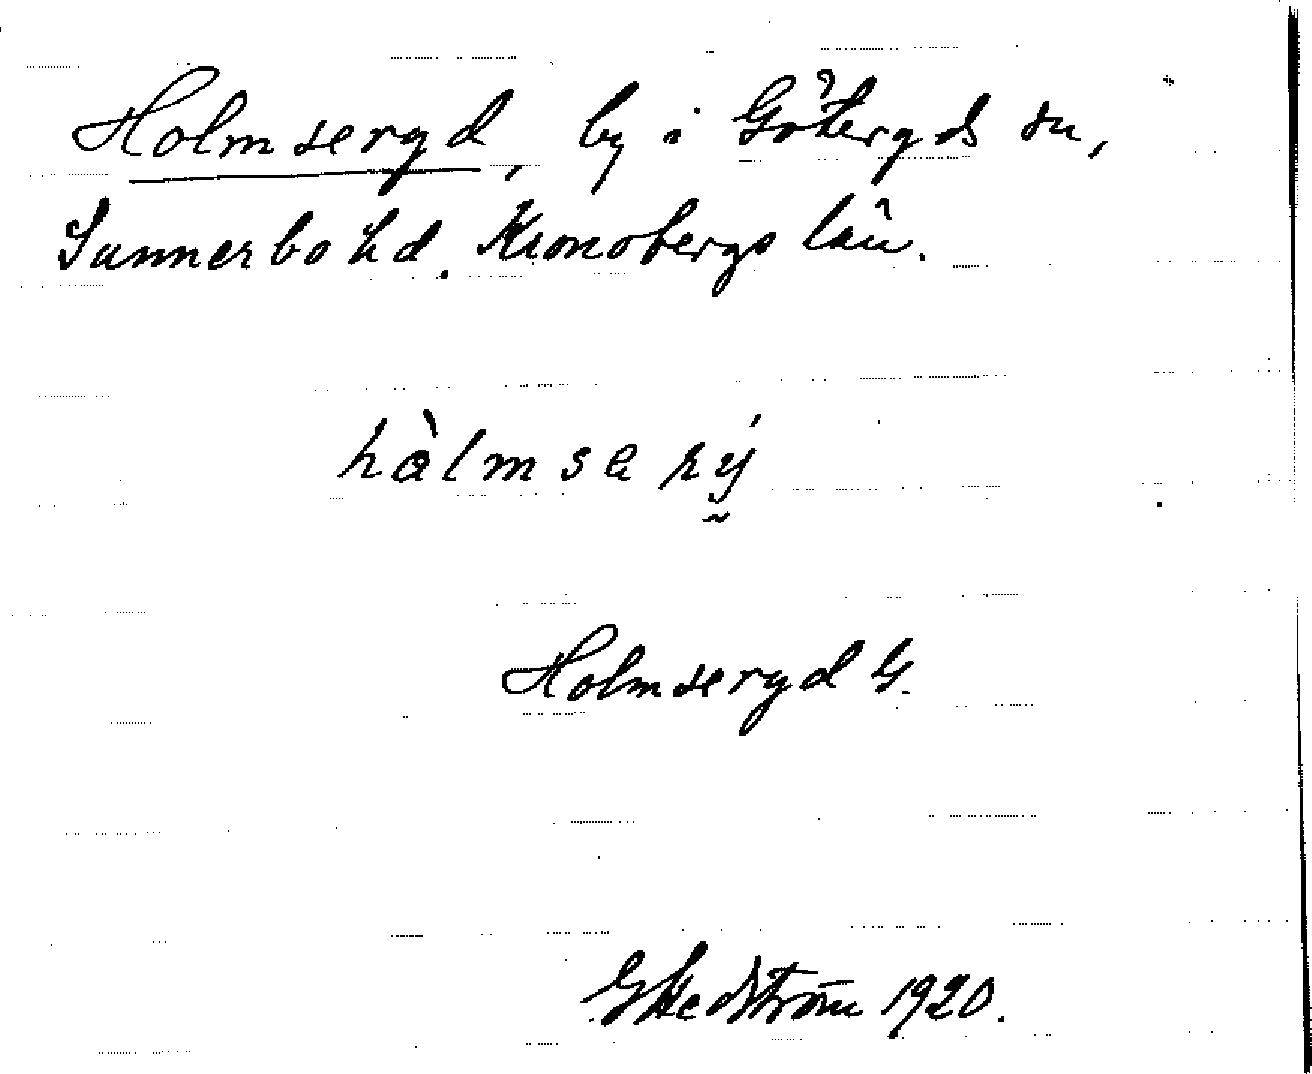 Holmseryd, by i Göteryds sn,
Sunnerbo hd. Kronobergs län.
hòlmsarý
Holmseryd G.
G Hedström 1920.